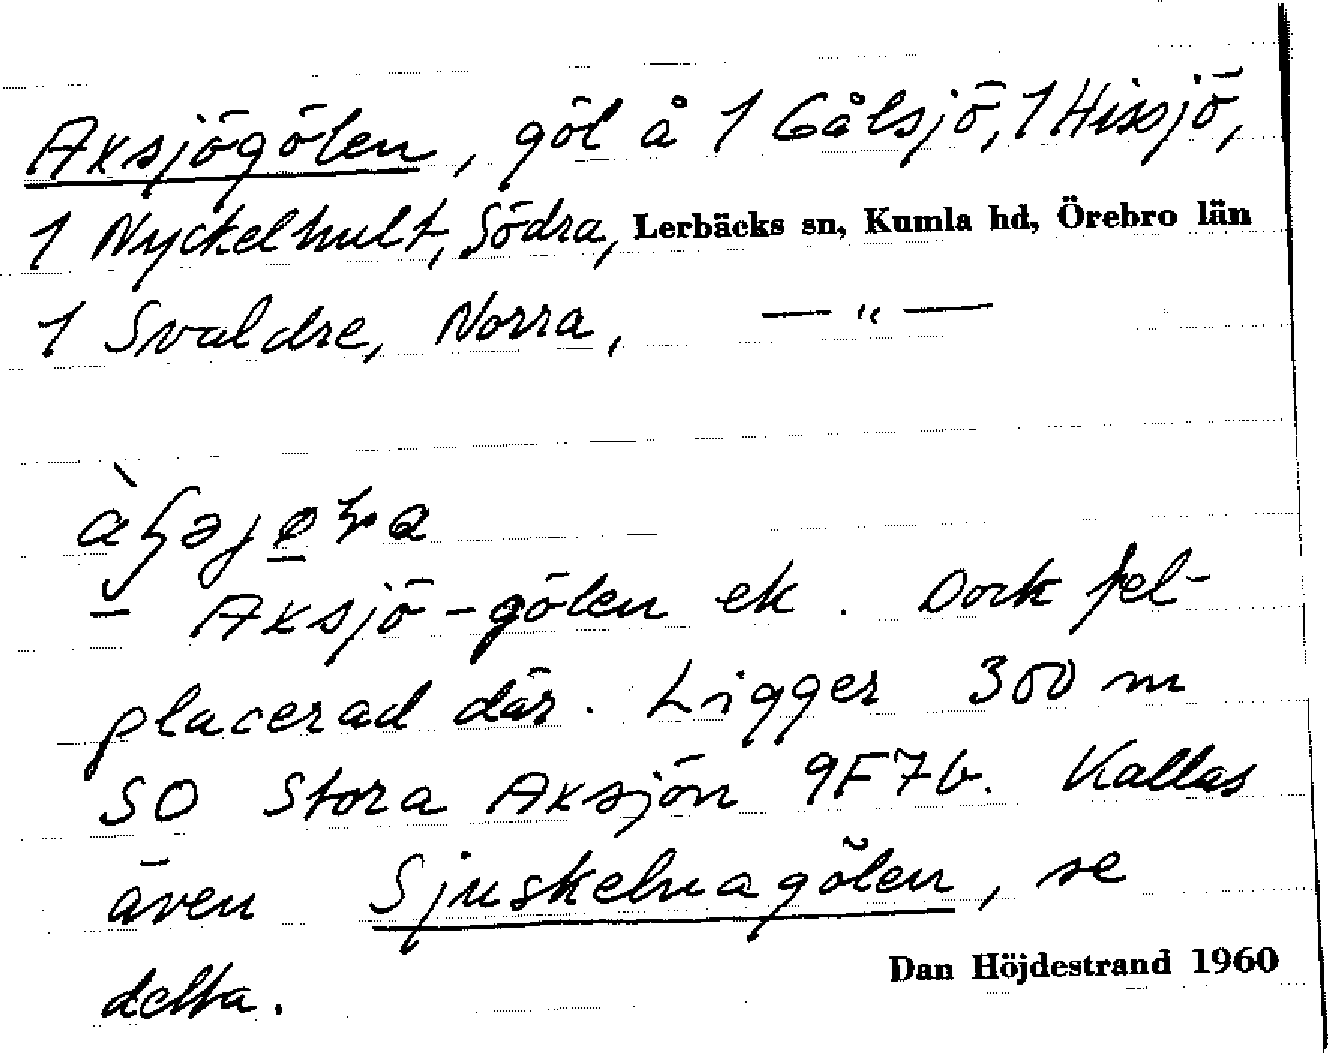 Axsjögölen, göl å 1 Gålsjö, 1 Hissjö,
1 Nyckelhult, Södra, Lerbäcks sn, Kumla hd, Örebro län
1 Svaldre, Norra, — " —
Axsjö-gölen ek. Dock fel-
placerad där. Ligger 300 m
SO Stora Axsjön 9F7b. Kallas
även Sjuskelnagölen, se
detta.
Dan Höjdestrand 1960